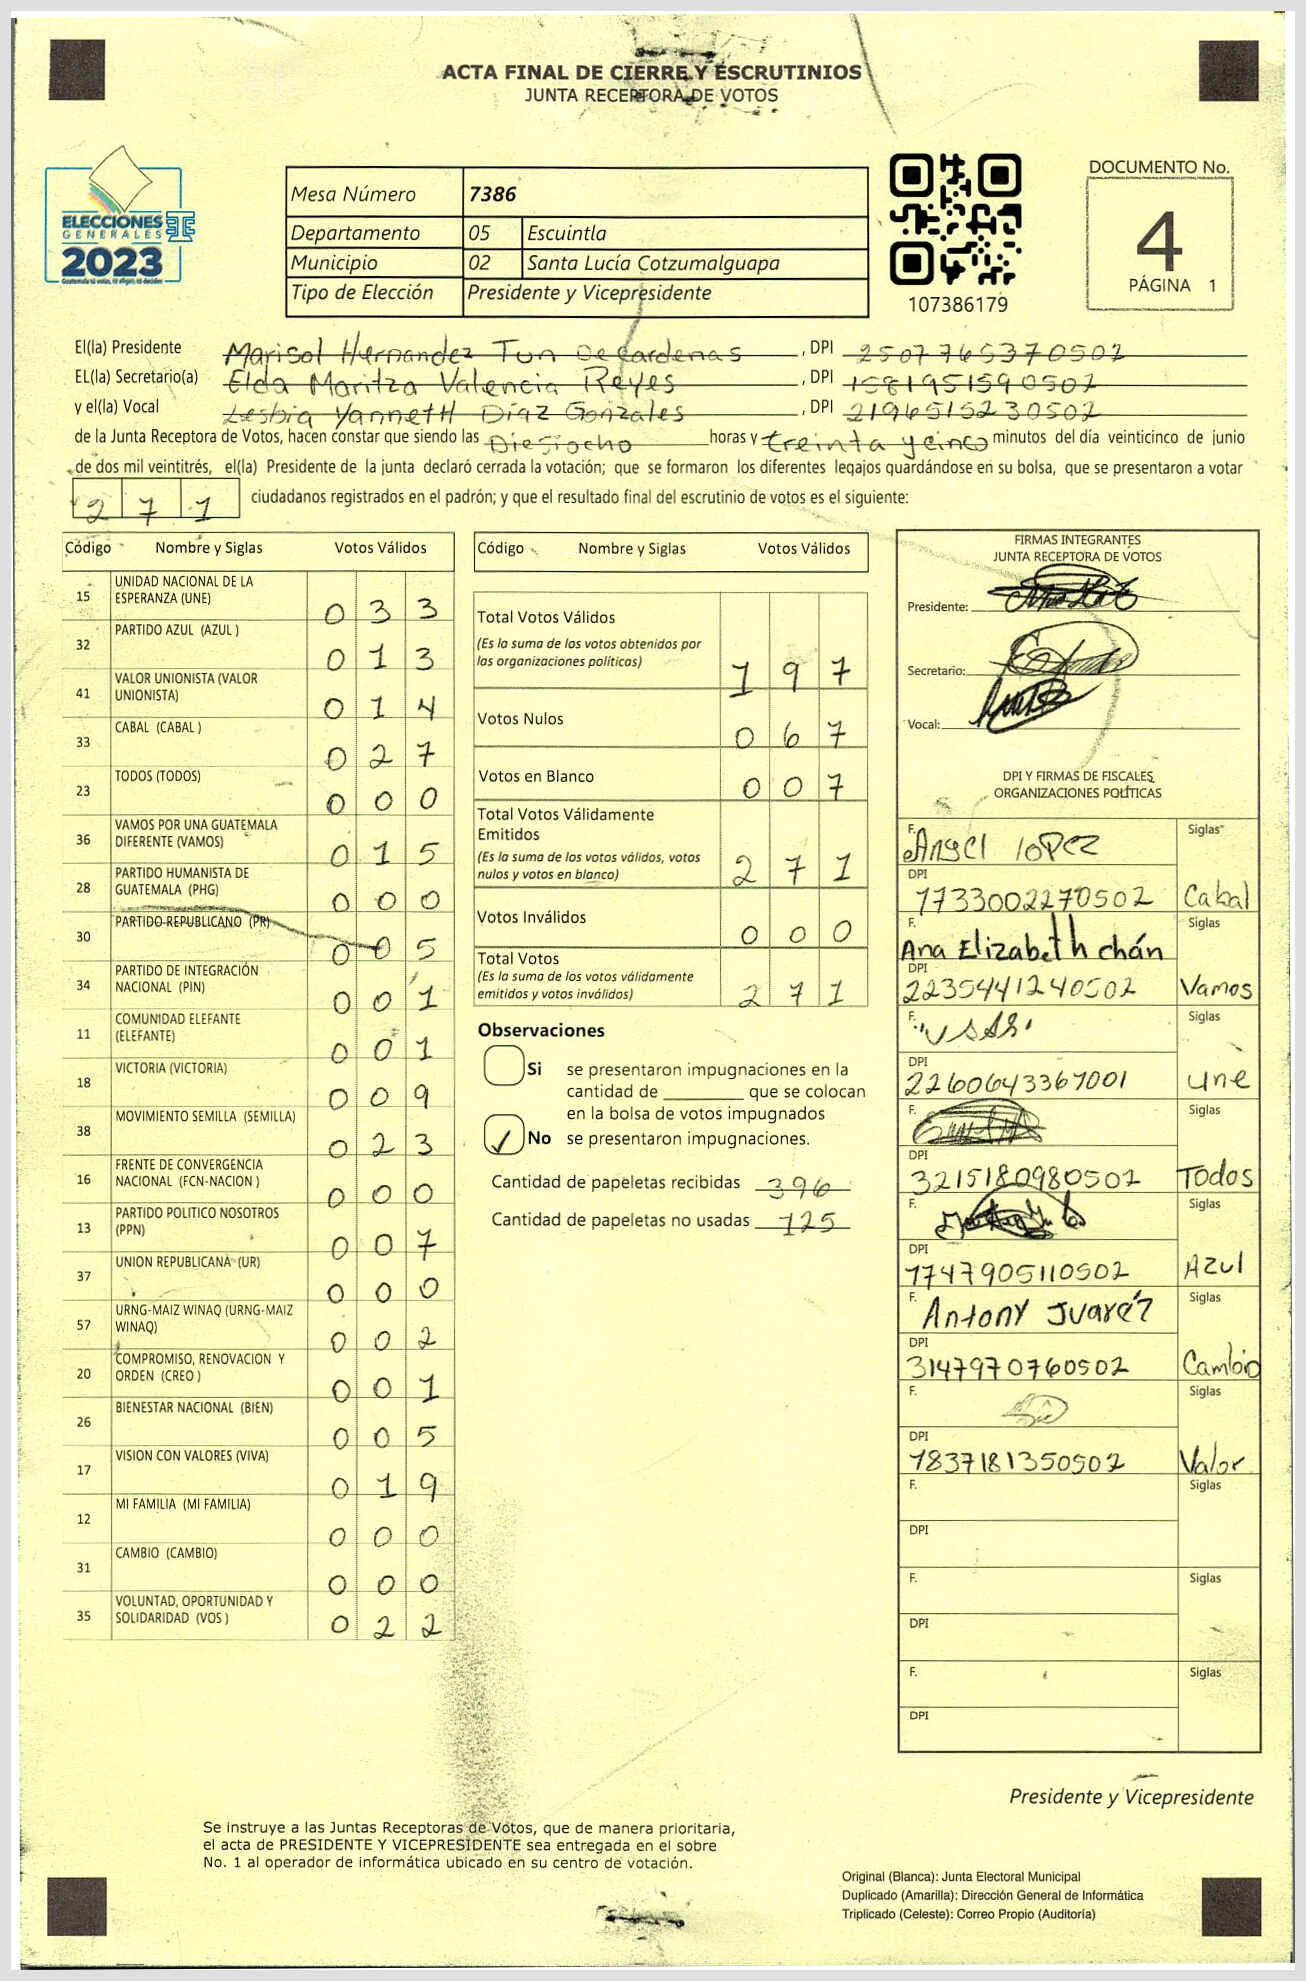 ACTA FINAL DE CIERRE Y ESCRUTINIOS
JUNTA RECEPTORA DE VOTOS
ELECCIONES
GENERALES
2023
Guatemala tú votas, tú eliges, tú decides
Mesa Número 7386
Departamento 05 Escuintla
Municipio 02 Santa Lucía Cotzumalguapa
Tipo de Elección Presidente y Vicepresidente
107386179
DOCUMENTO No.
4
PÁGINA 1
El(la) Presidente Marisol Hernandez Tun De Cardenas, DPI 2507765370502
EL(la) Secretario(a) Elda Maritza Valencia Reyes, DPI 1581951590502
y el(la) Vocal Lesbia Yanneth Díaz Gonzales, DPI 2196515230502
de la Junta Receptora de Votos, hacen constar que siendo las Diesiocho horas y treinta y cinco minutos del día veinticinco de junio
de dos mil veintitrés, el(la) Presidente de la junta declaró cerrada la votación; que se formaron los diferentes legajos guardándose en su bolsa, que se presentaron a votar
271 ciudadanos registrados en el padrón; y que el resultado final del escrutinio de votos es el siguiente:
Código Nombre y Siglas Votos Válidos
15 UNIDAD NACIONAL DE LA ESPERANZA (UNE) 033
32 PARTIDO AZUL (AZUL ) 013
41 VALOR UNIONISTA (VALOR UNIONISTA) 014
33 CABAL (CABAL ) 027
23 TODOS (TODOS) 000
36 VAMOS POR UNA GUATEMALA DIFERENTE (VAMOS) 015
28 PARTIDO HUMANISTA DE GUATEMALA (PHG) 000
30 PARTIDO REPUBLICANO (PR) 005
34 PARTIDO DE INTEGRACIÓN NACIONAL (PIN) 001
11 COMUNIDAD ELEFANTE (ELEFANTE) 001
18 VICTORIA (VICTORIA) 009
38 MOVIMIENTO SEMILLA (SEMILLA) 023
16 FRENTE DE CONVERGENCIA NACIONAL (FCN-NACION ) 000
13 PARTIDO POLITICO NOSOTROS (PPN) 007
37 UNION REPUBLICANA (UR) 000
57 URNG-MAIZ WINAQ (URNG-MAIZ WINAQ) 002
20 COMPROMISO, RENOVACION Y ORDEN (CREO ) 001
26 BIENESTAR NACIONAL (BIEN) 005
17 VISION CON VALORES (VIVA) 019
12 MI FAMILIA (MI FAMILIA) 000
31 CAMBIO (CAMBIO) 000
35 VOLUNTAD, OPORTUNIDAD Y SOLIDARIDAD (VOS ) 022
Código Nombre y Siglas Votos Válidos
Total Votos Válidos
(Es la suma de los votos obtenidos por
las organizaciones políticas) 197
Votos Nulos 067
Votos en Blanco 007
Total Votos Válidamente
Emitidos
(Es la suma de los votos válidos, votos
nulos y votos en blanco) 271
Votos Inválidos 000
Total Votos
(Es la suma de los votos válidamente
emitidos y votos inválidos) 271
Observaciones
Si se presentaron impugnaciones en la
cantidad de ________ que se colocan
en la bolsa de votos impugnados
✓ No se presentaron impugnaciones.
Cantidad de papeletas recibidas 396
Cantidad de papeletas no usadas 125
FIRMAS INTEGRANTES
JUNTA RECEPTORA DE VOTOS
Presidente:
Secretario:
Vocal:
DPI Y FIRMAS DE FISCALES
ORGANIZACIONES POLÍTICAS
F. Angel lopez Siglas
DPI 1733002270502 Cabal
F. Ana Elizabeth chán Siglas
DPI 2235441240502 Vamos
F. Siglas
DPI 2260643367001 une
F. Siglas
DPI 3215180980502 Todos
F. Siglas
DPI 1747905110502 Azul
F. Antony Juaréz Siglas
DPI 3147970760502 Cambio
F. Siglas
DPI 1837181350502 Valor
F. Siglas
DPI
F. Siglas
DPI
F. Siglas
DPI
Presidente y Vicepresidente
Se instruye a las Juntas Receptoras de Votos, que de manera prioritaria,
el acta de PRESIDENTE Y VICEPRESIDENTE sea entregada en el sobre
No. 1 al operador de informática ubicado en su centro de votación.
Original (Blanca): Junta Electoral Municipal
Duplicado (Amarilla): Dirección General de Informática
Triplicado (Celeste): Correo Propio (Auditoría)